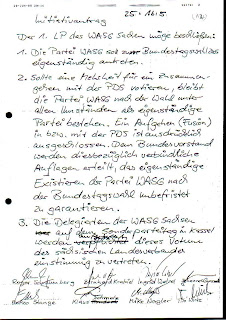 25.06.05
Initiativantrag
Der 1. LP des WASG Sachsen möge beschließen:
1. Die Partei WASG soll zur Bundestagswahl
eigenständig antreten.
2. Sollte eine Mehrheit für ein Zusammen-
gehen mit der PDS votieren, bleibt
die Partei WASG nach der Wahl unter
allen Umständen als eigenständige
Partei bestehen. Ein Aufgehen (Fusion)
in bzw. mit der PDS ist ausdrücklich
ausgeschlossen. Dem Bundesvorstand
werden diesbezüglich verbindliche
Auflagen erteilt, das eigenständige
Existieren der Partei WASG nach
der Bundestagswahl unbefristet
zu garantieren.
3. Die Delegierten der WASG Sachsen
auf dem Sonderparteitag in Kassel
werden dieses Votum
des sächsischen Landesverbandes
zur Abstimmung zu vertreten.
Mike Nagler